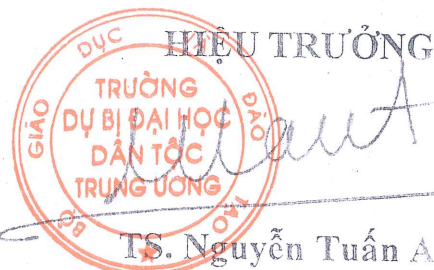 HIỆU TRƯỞNG
BỘ GIÁO DỤC VÀ ĐÀO TẠO
TRƯỜNG
DỰ BỊ ĐẠI HỌC
DÂN TỘC
TRUNG ƯƠNG
TS. Nguyễn Tuấn A